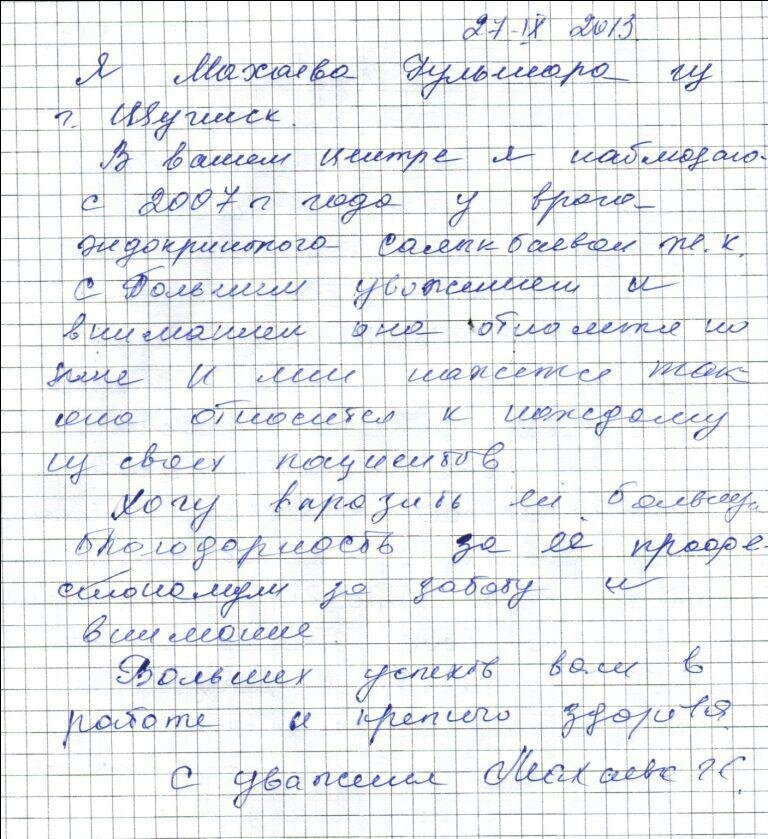 27-IX 2013
Я Махаева Гульмара из
г. Щучинск.
В вашем центре я наблюдаю-
с 2007 г года у врага-
эндокринолога Салыкбаевой Ж.К.
С Большим уважением и
вниманием она относится по
мне И мне кажется так
она относится к каждому
из своих пациентов
Хочу выразить ей большую
благодарность за её проофе-
сионализм за заботу и
внимание
Больших успехов вам в
работе и крепкого здоровья.
С уважением Махаева Н.